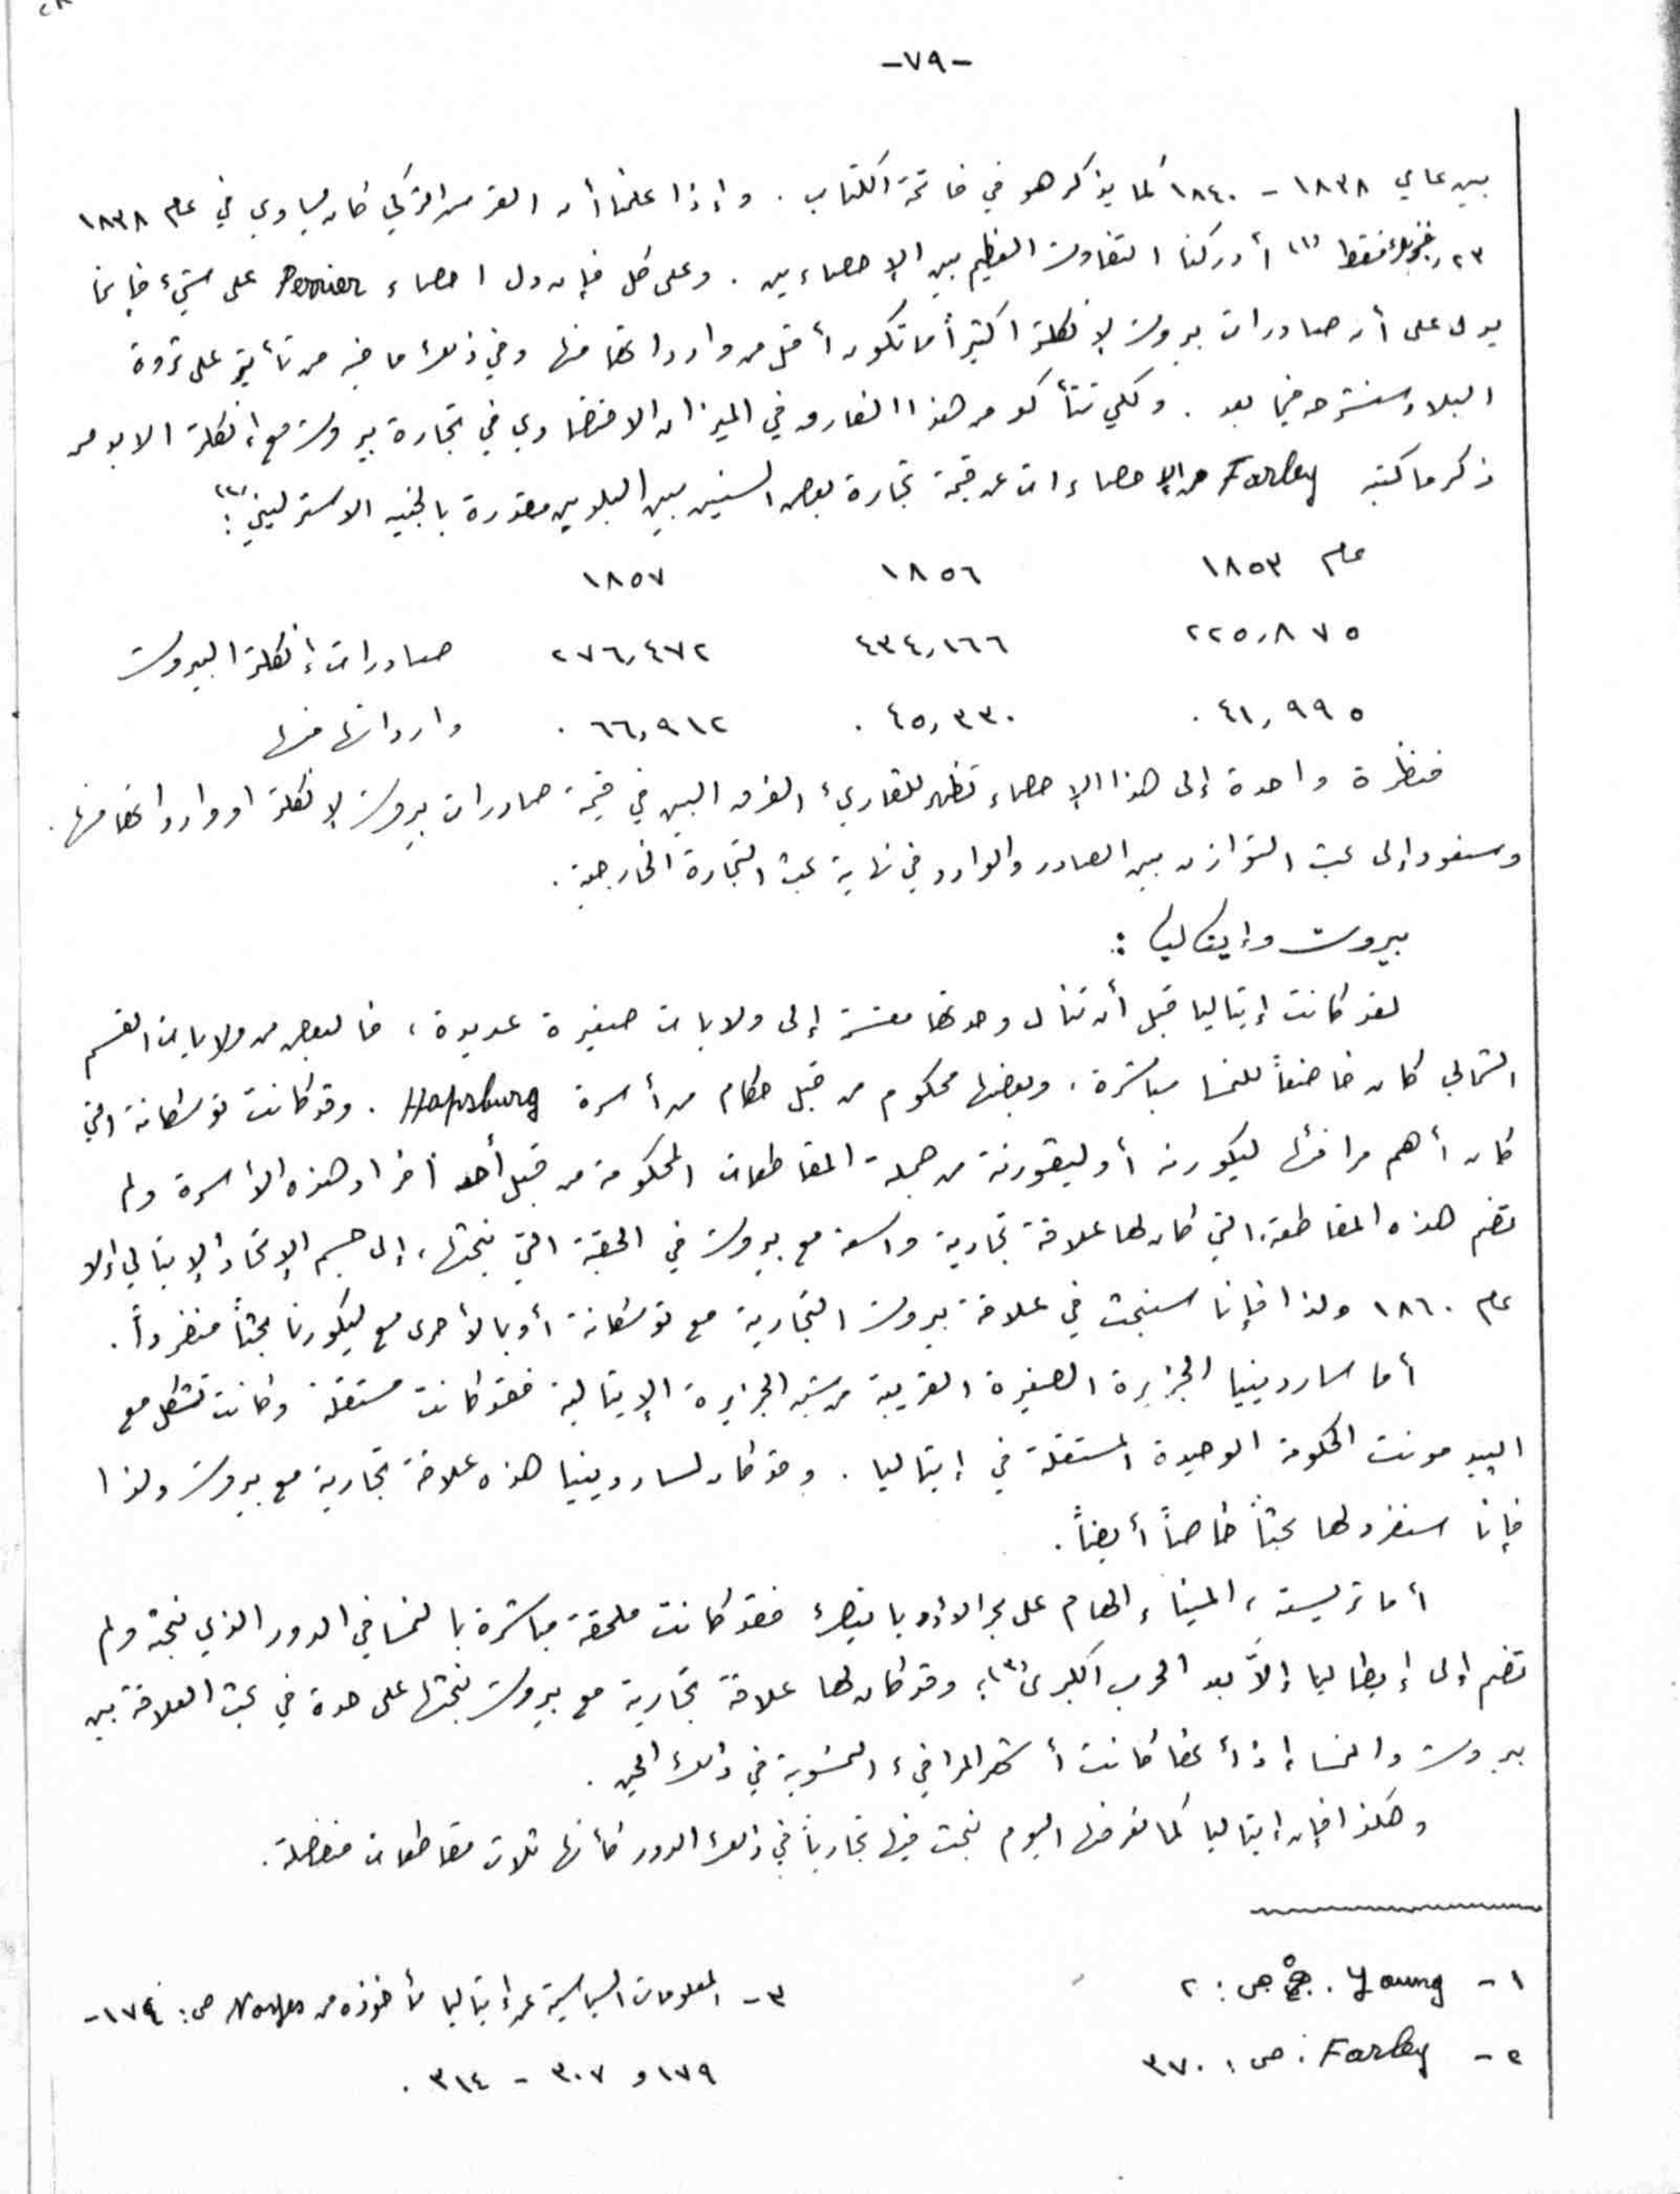 -٧٩-
بين عامي ١٨٣٨ - ١٨٤٠ كما يذكر هو في فاتحة الكتاب . وإذا علمنا أن القرش التركي كان يساوي في عام ١٨٣٨
٢٣ر فقط (١) أدركنا التفاوت العظيم بين الإحصاءين . وعلى كل فإن دل احصاء Perrier على شيء فإنما
يدل على أن صادرات بيروت لإنكلترا كثيراً ما تكون أقل من وارداتها منها وفي ذلك ما فيه من تأثير على ثروة
البلاد سنشرحه فيما بعد . ولكي نتأكد من هذا الفارق في الميزان الاقتصادي في تجارة بيروت مع إنكلترا لا بد من
ذكر ما كتبه Farley من الإحصاءات عن قيمة تجارة بعض السنين بين البلدين مقدرة بالجنيه الاسترليني (٢) :
عام ١٨٥٣ ١٨٥٦ ١٨٥٧
٢٢٥,٨٧٥ ٤٣٤,١٦٦ ٢٧٦,٤٧٢ صادرات إنكلترا لبيروت
٤١,٩٩٥ . ٤٥,٣٣٠ . ٦٦,٩١٢ . وارداتها منها
فنظرة واحدة إلى هذا الإحصاء تظهر للقاريء الفرق البين في قيمة صادرات بيروت لإنكلترا ووارداتها منها .
وسنعود إلى بحث التوازن بين الصادر والوارد في نهاية بحث التجارة الخارجية .
بيروت وإيتاليا :
لقد كانت إيتاليا قبل أن تنال وحدتها مقسمة إلى ولايات صغيرة عديدة ، فالبعض من ولايات القسم
الشمالي كان خاضعاً للنمسا مباشرة ، وبعضها محكوم من قبل حكام من أسرة Hapsburg . وقد كانت توسكانة التي
كان أهم مرافئها ليكورنه أو ليقورنة من جملة المقاطعات المحكومة من قبل أحد أفراد هذه الأسرة ولم
تضم هذه المقاطعة ، التي كان لها علاقة تجارية واسعة مع بيروت في الحقبة التي نبحثها ، إلى جسم الإتحاد الإيتالي إلا
عام ١٨٦٠ ولذا فإنا سنبحث في علاقة بيروت التجارية مع توسكانة أو بالأحرى مع ليكورنا بحثاً منفرداً .
أما ساردينيا الجزيرة الصغيرة القريبة من شبه الجزيرة الإيتالية فقد كانت مستقلة وكانت تشكل مع
البيدمونت الحكومة الوحيدة المستقلة في إيتاليا . وقد كان لساردينيا هذه علاقة تجارية مع بيروت ولذا
فإنا سنفرد لها بحثاً خاصاً أيضاً .
أما تريسته ، الميناء الهام على بحر الادرياتيك فقد كانت ملحقة مباشرة بالنمسا في الدور الذي نبحثه ولم
تضم إلى إيطاليا إلاّ بعد الحرب الكبرى (٣) ، وقد كان لها علاقة تجارية مع بيروت نبحثها على حدة في بحث العلاقة بين
بيروت والنمسا إذ أنها كانت أشهر المرافيء النمسوية في ذلك الحين .
وهكذا فإن إيتاليا كما نعرفها اليوم نبحث فيها تجارياً في ذلك الدور كأنها ثلاث مقاطعات منفصلة .
١ - Young . ص : ٢
٢ - Farley . ص : ٣٧٠
٣ - المعلومات السياسية عن إيتاليا مأخوذه من Noyes ص : ١٧٤ -
١٧٩ و ٣٠٧ - ٣١٤ .